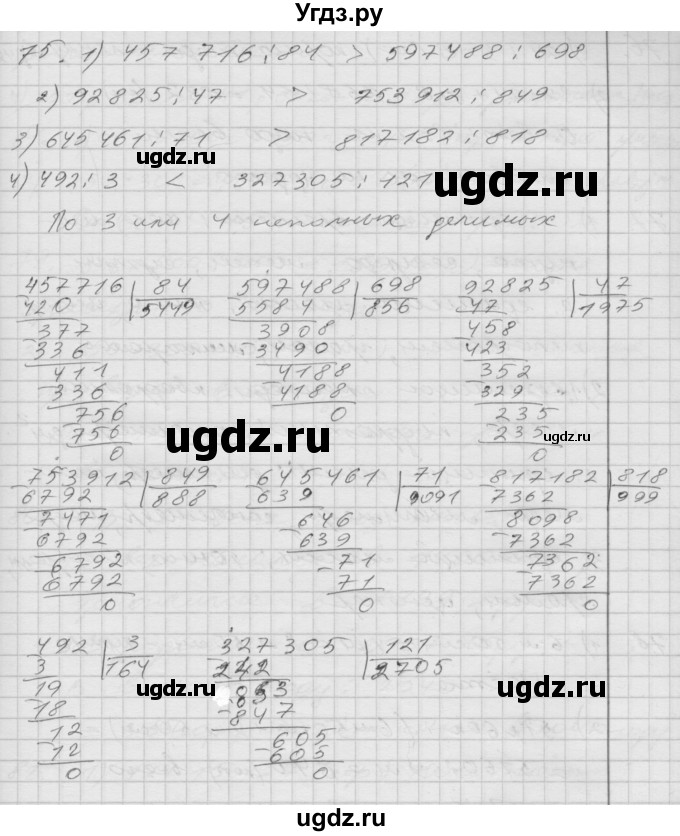 Угдз.ру
75. 1) 457 716 : 84 > 597488 : 698
2) 92825 : 47 > 753912 : 849
3) 645461 : 71 > 817182 : 818
ugdz.ru
4) 492 : 3 < 327305 : 121
ugdz.ru
По 3 или 4 неполных делимых
457716 | 84
420 5449
377
336
411
336
756
756
0
597488 | 698
5584 856
3908
3490
4188
4188
0
92825 | 47
47 1975
458
423
352
329
235
235
0
ugdz.ru
ugdz.ru
753912 | 849
6792 888
7471
6792
6792
6792
0
645461 | 71
639 9091
646
639
71
71
0
817182 | 818
7362 999
8098
7362
7362
7362
0
ugdz.ru
492 | 3
3 164
19
18
12
12
0
327305 | 121
242 2705
853
847
605
605
0
ugdz.ru
ugdz.ru